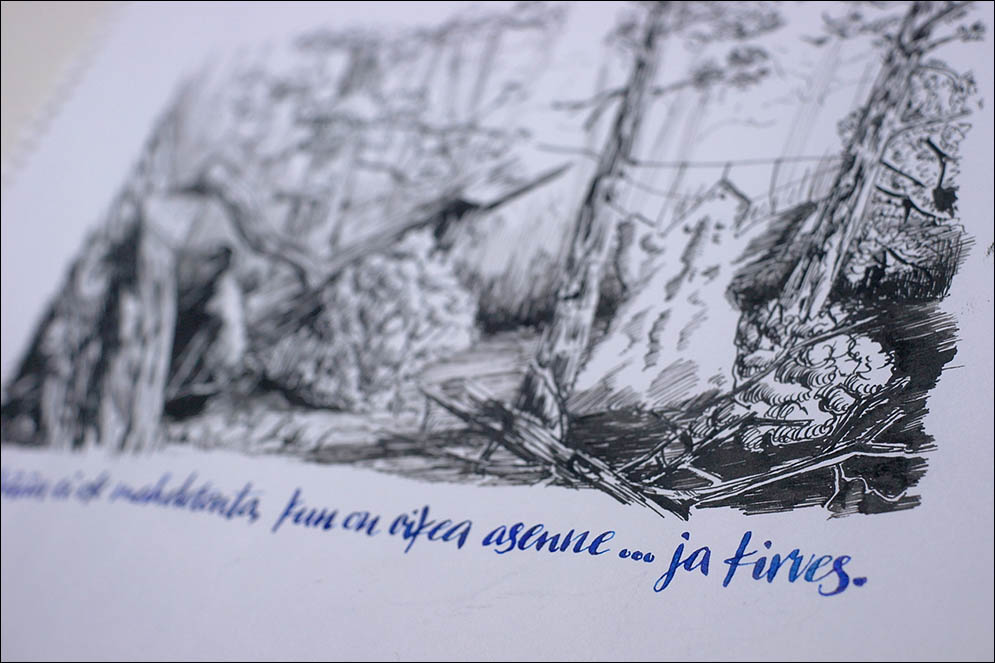 ei ole mahdotonta, kun on oikea asenne ... ja kirves.